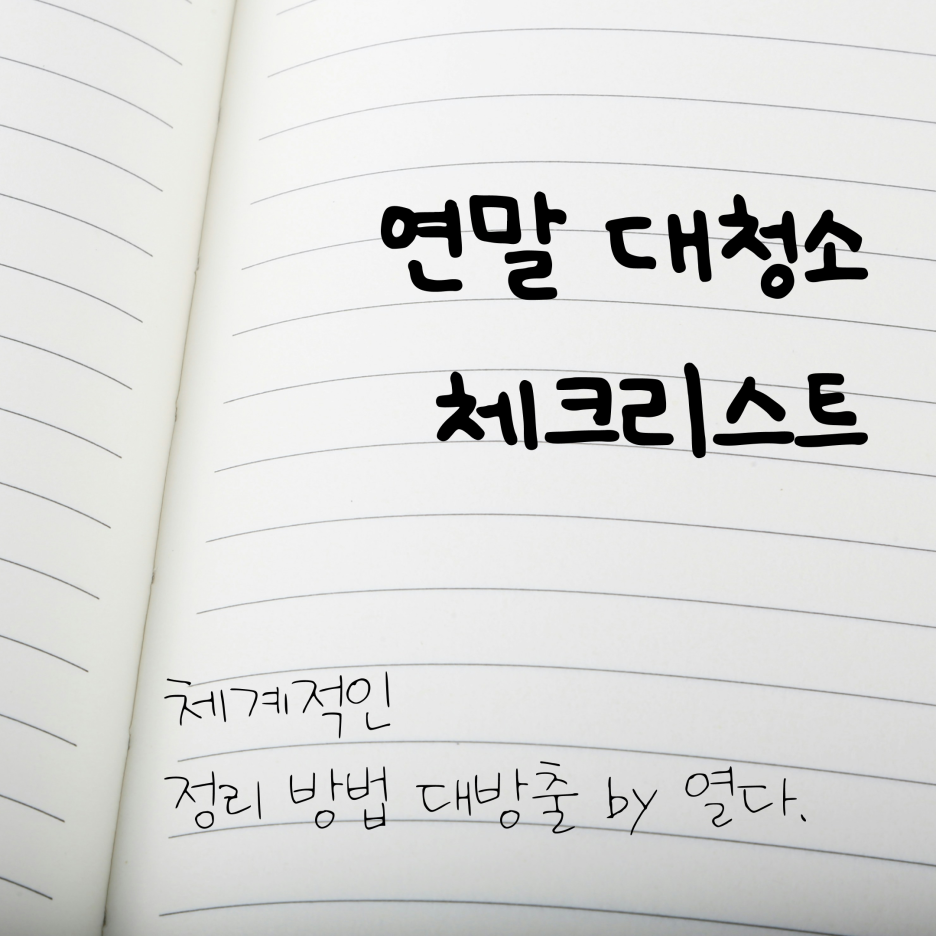 연말 대청소
체크리스트
체계적인
정리 방법 대방출 by 열다.